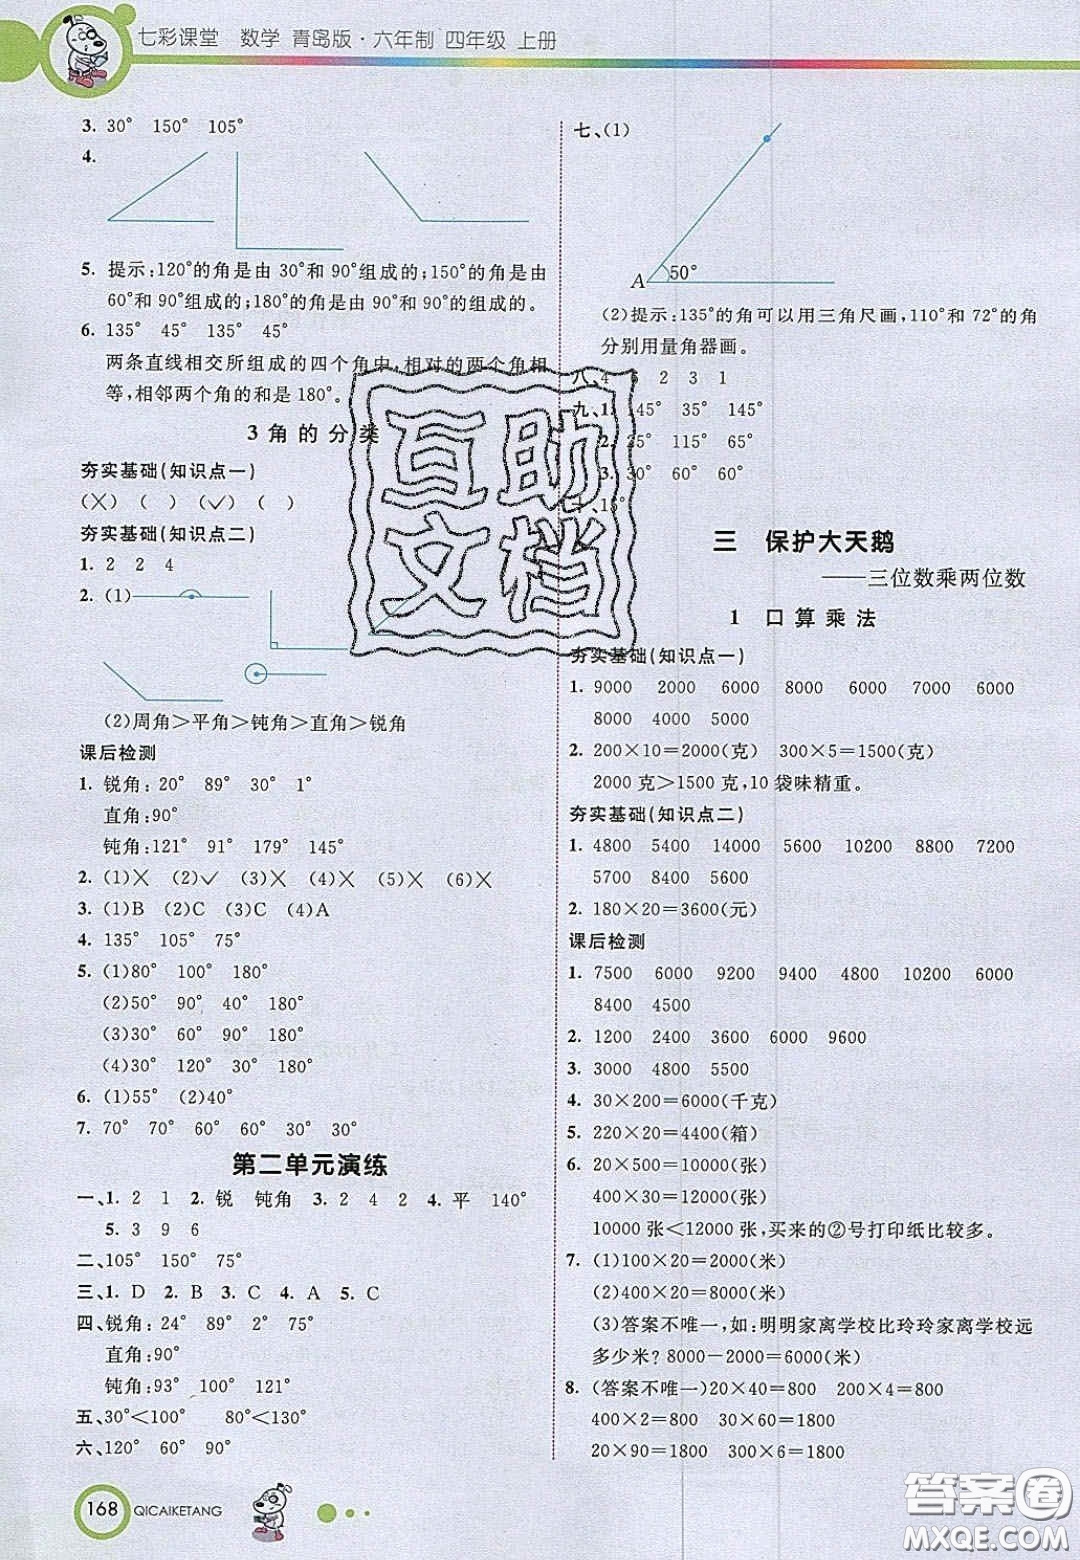 七彩课堂 数学 青岛版·六年制 四年级 上册
3. 30° 150° 105°
4.
5. 提示:120°的角是由 30°和 90°组成的;150°的角是由
60°和 90°组成的;180°的角是由 90°和 90°的组成的。
6. 135° 45° 135° 45°
两条直线相交所组成的四个角中,相对的两个角相
等,相邻两个角的和是 180°。
3 角 的 分 类
夯实基础(知识点一)
(╳) ( ) (✓) ( )
夯实基础(知识点二)
1. 2 2 4
2. (1)
(2)周角>平角>钝角>直角>锐角
课后检测
1. 锐角:20° 89° 30° 1°
直角:90°
钝角:121° 91° 179° 145°
2. (1)╳ (2)✓ (3)╳ (4)╳ (5)╳ (6)╳
3. (1)B (2)C (3)C (4)A
4. 135° 105° 75°
5. (1)80° 100° 180°
(2)50° 90° 40° 180°
(3)30° 60° 90° 180°
(4)30° 120° 30° 180°
6. (1)55° (2)40°
7. 70° 70° 60° 60° 30° 30°
第二单元演练
一、1. 2 1 2. 锐 钝角 3. 2 4 2 4. 平 140°
5. 3 9 6
二、105° 150° 75°
三、1. D 2. B 3. C 4. A 5. C
四、锐角: 24° 89° 2° 75°
直角:90°
钝角:93° 100° 121°
五、30°<100° 80°<130°
六、120° 60° 90°
168 QICAIKETANG
七、(1)
A 50°
(2)提示:135°的角可以用三角尺画,110°和 72°的角
分别用量角器画。
八、4 5 2 3 1
九、1. 145° 35° 145°
2. 25° 115° 65°
3. 30° 60° 60°
十、15°
三 保护大天鹅
——三位数乘两位数
1 口 算 乘 法
夯实基础(知识点一)
1. 9000 2000 6000 8000 6000 7000
8000 4000 5000
2. 200×10=2000(克) 300×5=1500(克)
2000 克>1500 克,10 袋味精重。
夯实基础(知识点二)
1. 4800 5400 14000 5600 10200 8800 7200
5700 8400 5600
2. 180×20=3600(元)
课后检测
1. 7500 6000 9200 9400 4800 10200 6000
8400 4500
2. 1200 2400 3600 6000 9600
3. 3000 4800 5500
4. 30×200=6000(千克)
5. 220×20=4400(箱)
6. 20×500=10000(张)
400×30=12000(张)
10000 张<12000 张,买来的②号打印纸比较多。
7. (1)100×20=2000(米)
(2)400×20=8000(米)
(3)答案不唯一,如:明明家离学校比玲玲家离学校远
多少米? 8000-2000=6000(米)
8. (答案不唯一)20×40=800 200×4=800
400×2=800 30×60=1800
20×90=1800 300×6=1800
互助
文档
答案圈
MXQE.COM